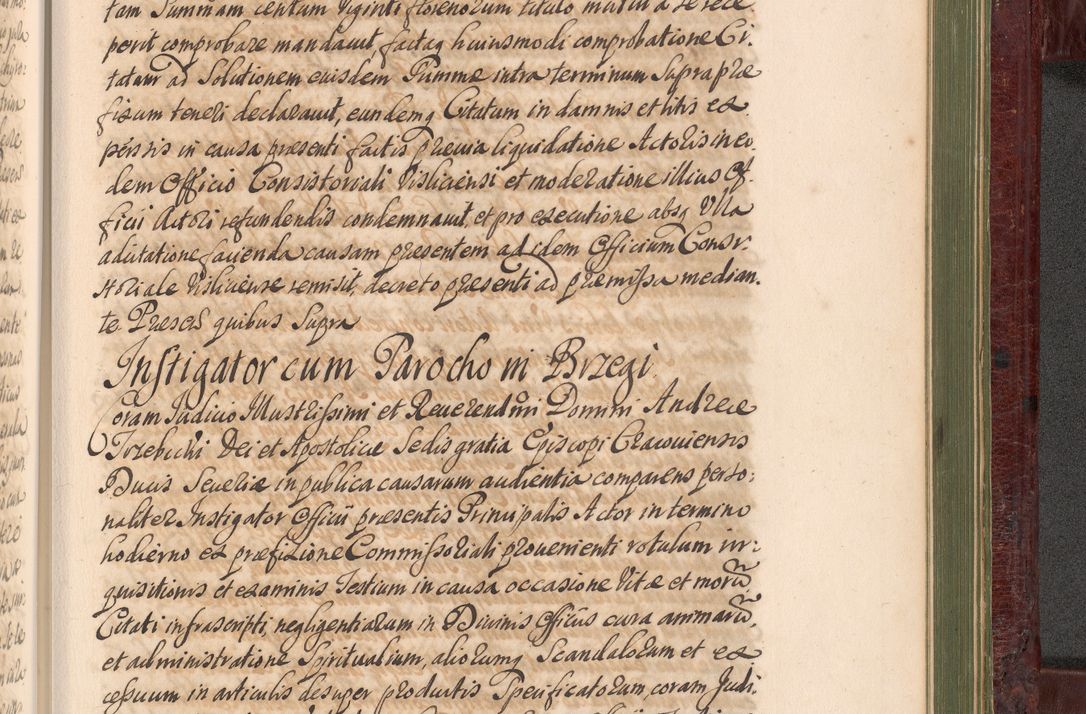 tam Summam centum viginti florenorum titulo mutui a se rece
perit comprobare mandavit, factaq huiusmodi comprobatione Ci¬
tatum ad Solutionem eiusdem Summæ intra terminum Supra præ
fixum teneri declaravit, eundemq Citatum in damnis et litis ex
pensis in causa præsenti factis prævia liquidatione Actoris in eo¬
dem Officio Consistoriali Visliciensi et moderatione illius Of¬
ficii Actori refundendis condemnavit, et pro executione absq Ulla
adcitatione facienda causam præsentem ad idem Officium Consi¬
storiale Visliciense remisit, decreto præsenti ad præmissa median¬
te Præsen quibus Supra
Instigator cum Parocho in Brzegi
Coram Judicio Illustrissimi et Reverendmi Domini Andreæ
Trzebicki Dei et Apostolicæ Sedis gratia Episcopi Cracoviensis
Ducis Severiæ in publica causarum audientia comparens perso¬
naliter Instigator Officii præsentis Principalis Actor in termino
hodierno ex præfixione Commissoriali provenienti rotulum in¬
quisitionis et examinis Testium in causa occasione Vitæ et morū
Citati infrascripti, negligentiarum in Divinis Officiis cura animarū,
et administratione Spiritualium, aliorumq Scandalorum et ex
cessuum in articulis desuper productis Specificatorum, coram Judi¬